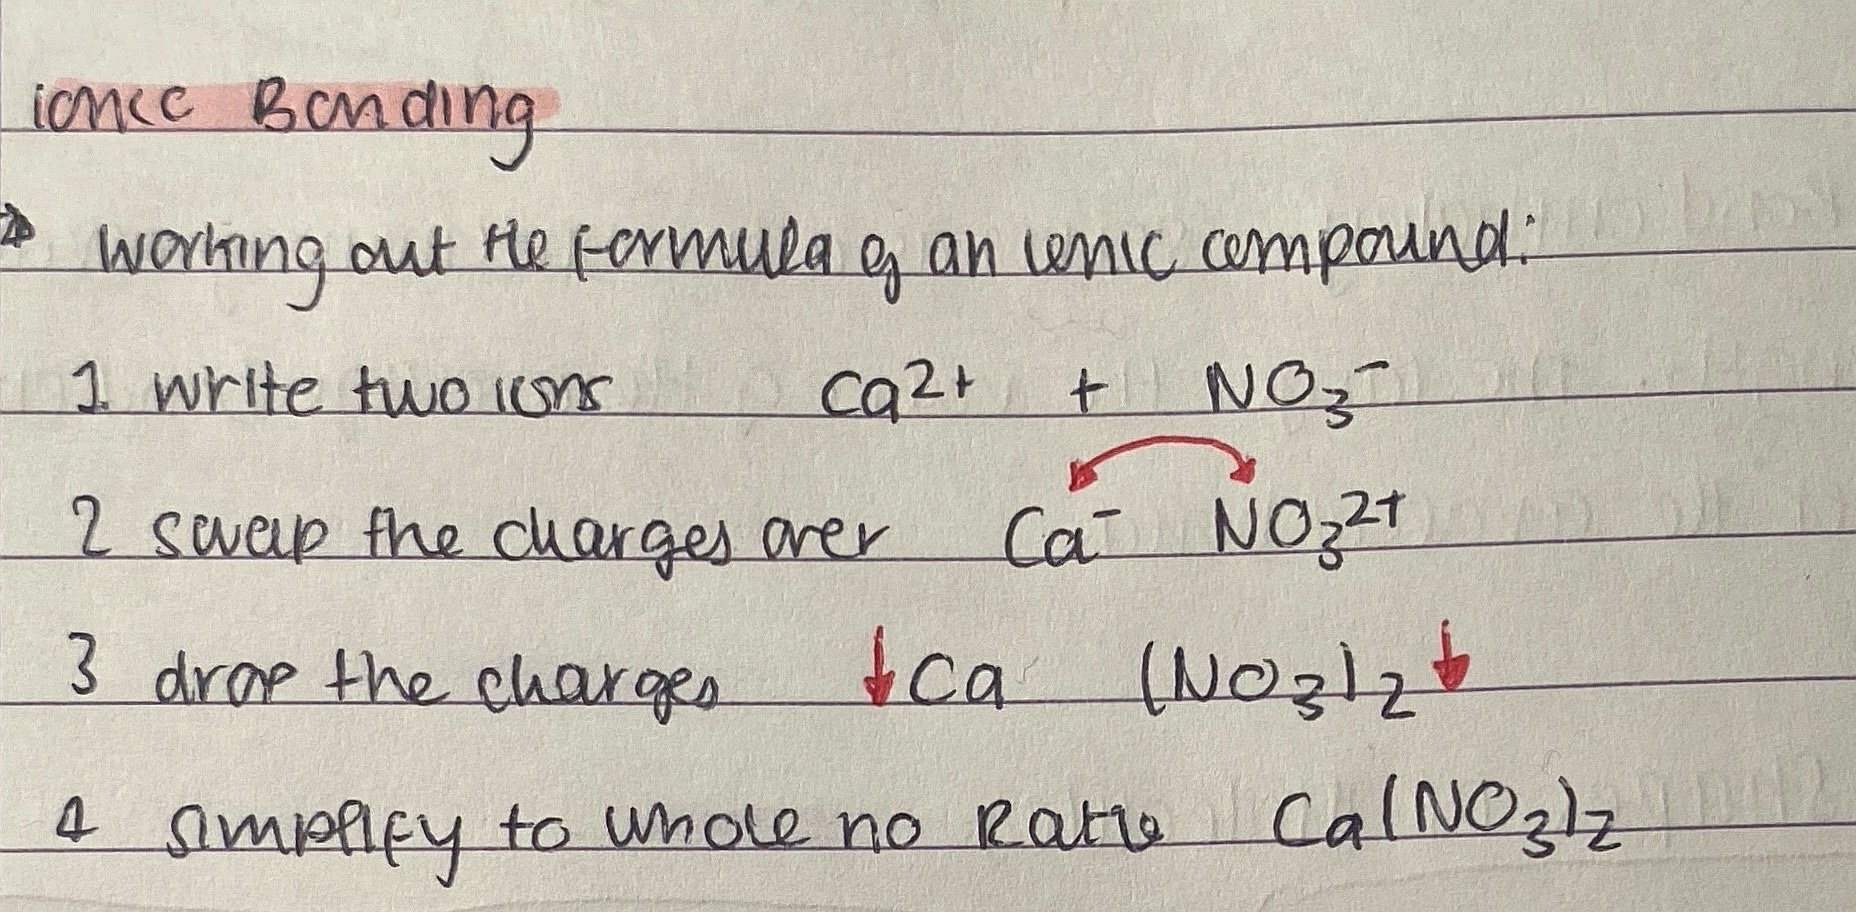 ionic Bonding
→ working out the formula of an ionic compound:
1. write two ions Ca²⁺ + NO₃⁻
2 swap the charges over Ca⁻ NO₃²⁺
3 drop the charges ↓Ca (NO₃)₂↓
4 simplify to whole no Ratio Ca(NO₃)₂